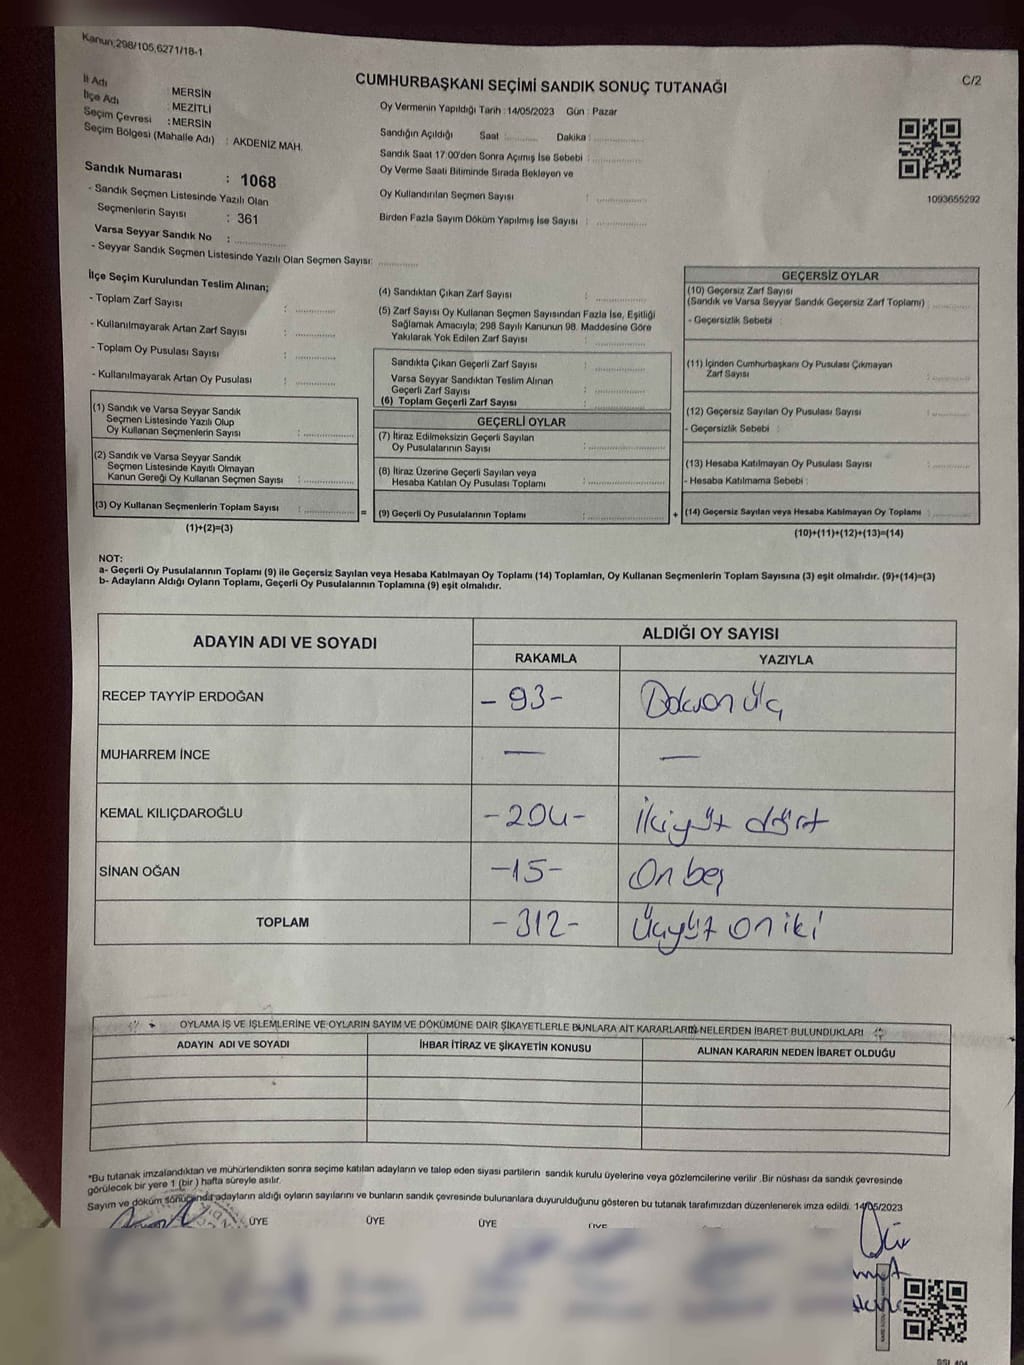 Kanun;298/105,6271/18-1
C/2
CUMHURBAŞKANI SEÇİMİ SANDIK SONUÇ TUTANAĞI
İl Adı : MERSİN
İlçe Adı : MEZİTLİ
Seçim Çevresi : MERSİN
Seçim Bölgesi (Mahalle Adı) : AKDENİZ MAH.
Oy Vermenin Yapıldığı Tarih : 14/05/2023 Gün : Pazar
Sandığın Açıldığı Saat : Dakika :
Sandık Saat 17:00'den Sonra Açımış İse Sebebi :
Oy Verme Saati Bitiminde Sırada Bekleyen ve
Oy Kullandırılan Seçmen Sayısı :
Birden Fazla Sayım Döküm Yapılmış İse Sayısı :
1093655292
Sandık Numarası : 1068
- Sandık Seçmen Listesinde Yazılı Olan
Seçmenlerin Sayısı : 361
Varsa Seyyar Sandık No :
- Seyyar Sandık Seçmen Listesinde Yazılı Olan Seçmen Sayısı:
İlçe Seçim Kurulundan Teslim Alınan;
- Toplam Zarf Sayısı :
- Kullanılmayarak Artan Zarf Sayısı :
- Toplam Oy Pusulası Sayısı :
- Kullanılmayarak Artan Oy Pusulası :
(1) Sandık ve Varsa Seyyar Sandık
Seçmen Listesinde Yazılı Olup
Oy Kullanan Seçmenlerin Sayısı :
(2) Sandık ve Varsa Seyyar Sandık
Seçmen Listesinde Kayıtlı Olmayan
Kanun Gereği Oy Kullanan Seçmen Sayısı :
(3) Oy Kullanan Seçmenlerin Toplam Sayısı : =
(1)+(2)=(3)
(4) Sandıktan Çıkan Zarf Sayısı :
(5) Zarf Sayısı Oy Kullanan Seçmen Sayısından Fazla İse, Eşitliği
Sağlamak Amacıyla; 298 Sayılı Kanunun 98. Maddesine Göre
Yakılarak Yok Edilen Zarf Sayısı :
Sandıkta Çıkan Geçerli Zarf Sayısı :
Varsa Seyyar Sandıktan Teslim Alınan
Geçerli Zarf Sayısı :
(6) Toplam Geçerli Zarf Sayısı :
GEÇERLİ OYLAR
(7) İtiraz Edilmeksizin Geçerli Sayılan
Oy Pusulalarının Sayısı :
(8) İtiraz Üzerine Geçerli Sayılan veya
Hesaba Katılan Oy Pusulası Toplamı :
(9) Geçerli Oy Pusulalarının Toplamı : +
GEÇERSİZ OYLAR
(10) Geçersiz Zarf Sayısı
(Sandık ve Varsa Seyyar Sandık Geçersiz Zarf Toplamı) :
- Geçersizlik Sebebi :
(11) İçinden Cumhurbaşkanı Oy Pusulası Çıkmayan
Zarf Sayısı :
(12) Geçersiz Sayılan Oy Pusulası Sayısı :
- Geçersizlik Sebebi :
(13) Hesaba Katılmayan Oy Pusulası Sayısı :
- Hesaba Katılmama Sebebi :
(14) Geçersiz Sayılan veya Hesaba Katılmayan Oy Toplamı :
(10)+(11)+(12)+(13)=(14)
NOT:
a- Geçerli Oy Pusulalarının Toplamı (9) ile Geçersiz Sayılan veya Hesaba Katılmayan Oy Toplamı (14) Toplamları, Oy Kullanan Seçmenlerin Toplam Sayısına (3) eşit olmalıdır. (9)+(14)=(3)
b- Adayların Aldığı Oyların Toplamı, Geçerli Oy Pusulalarının Toplamına (9) eşit olmalıdır.
ADAYIN ADI VE SOYADI ALDIĞI OY SAYISI
RAKAMLA YAZIYLA
RECEP TAYYİP ERDOĞAN - 93 - Doksan üç
MUHARREM İNCE — —
KEMAL KILIÇDAROĞLU - 204 - İkiyüz dört
SİNAN OĞAN - 15 - On beş
TOPLAM - 312 - Üçyüz on iki
OYLAMA İŞ VE İŞLEMLERİNE VE OYLARIN SAYIM VE DÖKÜMÜNE DAİR ŞİKAYETLERLE BUNLARA AİT KARARLARIN NELERDEN İBARET BULUNDUKLARI
ADAYIN ADI VE SOYADI İHBAR İTİRAZ VE ŞİKAYETİN KONUSU ALINAN KARARIN NEDEN İBARET OLDUĞU
*Bu tutanak imzalandıktan ve mühürlendikten sonra seçime katılan adayların ve talep eden siyasi partilerin sandık kurulu üyelerine veya gözlemcilerine verilir .Bir nüshası da sandık çevresinde
görülecek bir yere 1 (bir ) hafta süreyle asılır.
Sayım ve döküm sonucunda adayların aldığı oyların sayılarını ve bunların sandık çevresinde bulunanlara duyurulduğunu gösteren bu tutanak tarafımızdan düzenlenerek imza edildi. 14/05/2023
ÜYE ÜYE ÜYE ÜYE